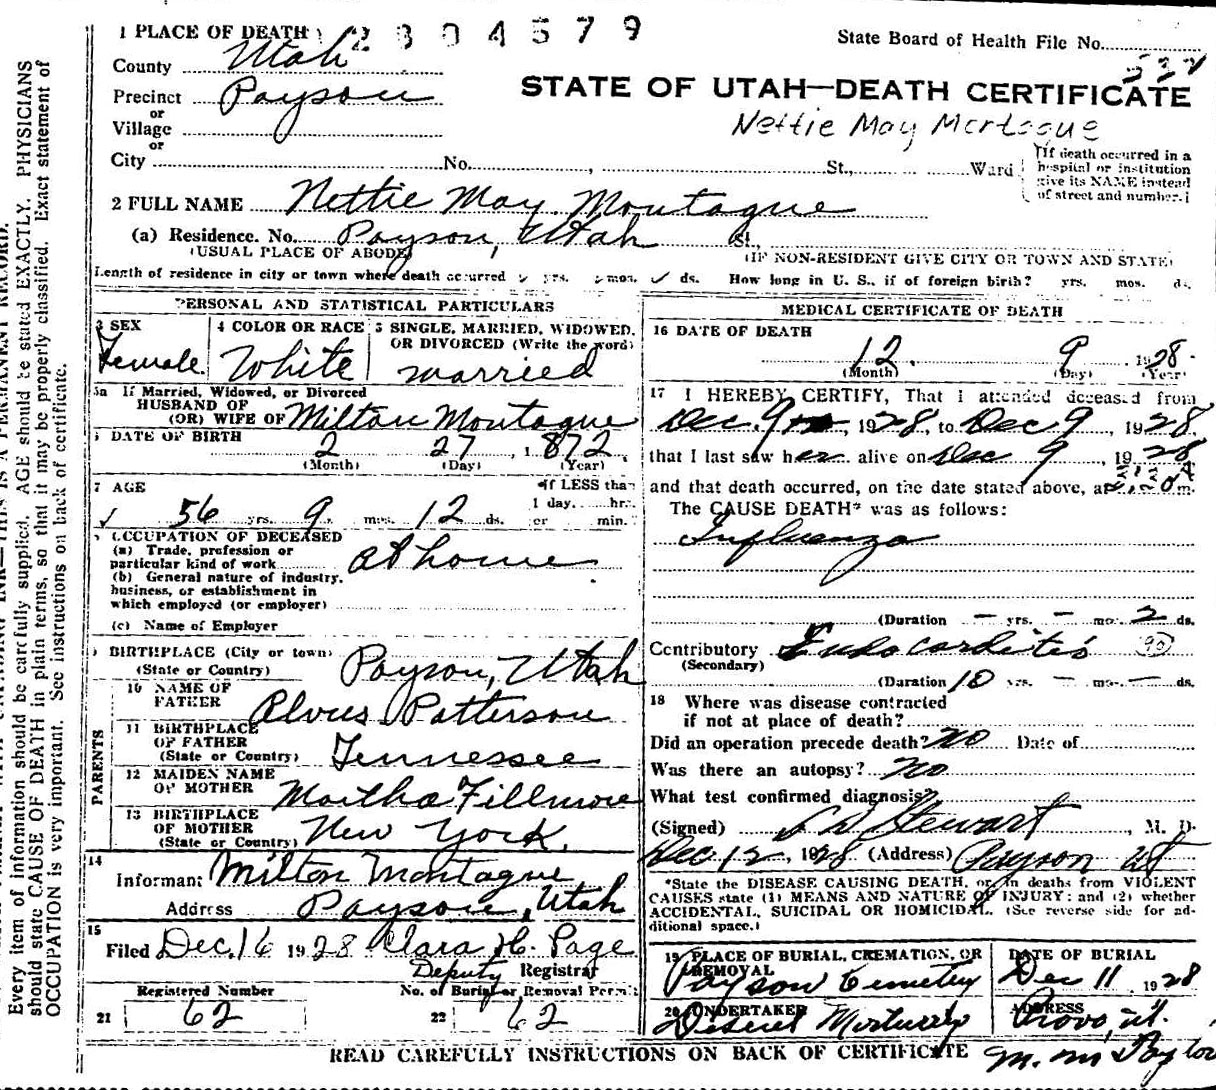 1 PLACE OF DEATH 2304579
State Board of Health File No.
County Utah
532
Precinct Payson
STATE OF UTAH—DEATH CERTIFICATE
or
Village
Nettie May Montague
or
City No. , St., Ward
(If death occurred in a hospital or institution give its NAME instead of street and number.)
2 FULL NAME Nettie May Montague
(a) Residence. No. Payson, Utah St.,
(USUAL PLACE OF ABODE) (IF NON-RESIDENT GIVE CITY OR TOWN AND STATE)
Length of residence in city or town where death occurred yrs. mos. ds. How long in U. S., if of foreign birth? yrs. mos. ds.
PERSONAL AND STATISTICAL PARTICULARS
3 SEX
Female
4 COLOR OR RACE
White
5 SINGLE, MARRIED, WIDOWED, OR DIVORCED (Write the word)
married
5a If Married, Widowed, or Divorced
HUSBAND OF
(OR) WIFE OF Milton Montague
6 DATE OF BIRTH
2 27 , 1872.
(Month) (Day) (Year)
7 AGE
If LESS than
1 day. hrs.
56 yrs. 9 mos. 12 ds. or min.
OCCUPATION OF DECEASED
(a) Trade, profession or
particular kind of work at home
(b) General nature of industry,
business, or establishment in
which employed (or employer)
(c) Name of Employer
BIRTHPLACE (City or town)
(State or Country) Payson, Utah
PARENTS
10 NAME OF
FATHER Alvus Patterson
11 BIRTHPLACE
OF FATHER
(State or Country) Tennessee
12 MAIDEN NAME
OF MOTHER Martha Fillmore
13 BIRTHPLACE
OF MOTHER
(State or Country) New York.
14
Informant Milton Montague
Address Payson, Utah
15
Filed Dec. 16 1928 Clara H. Page
Deputy Registrar
Registered Number No. of Burial or Removal Permit
21 62 22 62
MEDICAL CERTIFICATE OF DEATH
16 DATE OF DEATH
12 9 1928
(Month) (Day) (Year)
17 I HEREBY CERTIFY, That I attended deceased from
Dec. 9 , 1928, to Dec 9 , 1928.
that I last saw her alive on Dec 9 , 1928
and that death occurred, on the date stated above, at m.
The CAUSE DEATH* was as follows:
Influenza
(Duration — yrs. — mos. 2 ds.
Contributory Endocarditis 90
(Secondary)
(Duration 10 yrs. — mos. — ds.
18 Where was disease contracted
if not at place of death?
Did an operation precede death? No Date of
Was there an autopsy? No
What test confirmed diagnosis?
(Signed) Stewart , M. D.
Dec 12, 1928 (Address) Payson Ut
*State the DISEASE CAUSING DEATH, or, in deaths from VIOLENT
CAUSES state (1) MEANS AND NATURE OF INJURY; and (2) whether
ACCIDENTAL, SUICIDAL OR HOMICIDAL. (See reverse side for ad-
ditional space.)
19 PLACE OF BURIAL, CREMATION, OR
REMOVAL
Payson Cemetery
DATE OF BURIAL
Dec 11 1928
20 UNDERTAKER
Deseret Mortuary
ADDRESS
Provo, Ut.
READ CAREFULLY INSTRUCTIONS ON BACK OF CERTIFICATE
Every item of information should be carefully supplied. AGE should be stated EXACTLY. PHYSICIANS
should state CAUSE OF DEATH in plain terms, so that it may be properly classified. Exact statement of
OCCUPATION is very important. See instructions on back of certificate.